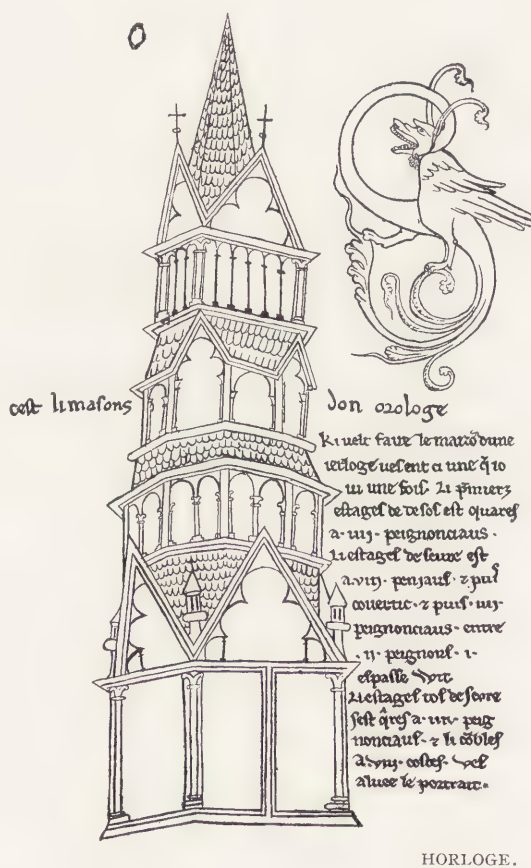 O
cest li masons don orologe
Ki velt faire le maizõ dune
ierloge ves ent ci une q̃ io
vi une fois. Li p̃miers
estages de desos est quares
a .iiij. peignonciaus.
Li estages deseure est
a .viij. peniaus. ⁊ puis
covertic. ⁊ puis .iiij.
peignonciaus. entre
.ij. peignons .i.
espasse wit
Li estages tos deseore
sest q̃res a .iiij. peig
nonciaus. ⁊ li cõbles
a .viij. costes. ves
aluec le portrait.
HORLOGE.